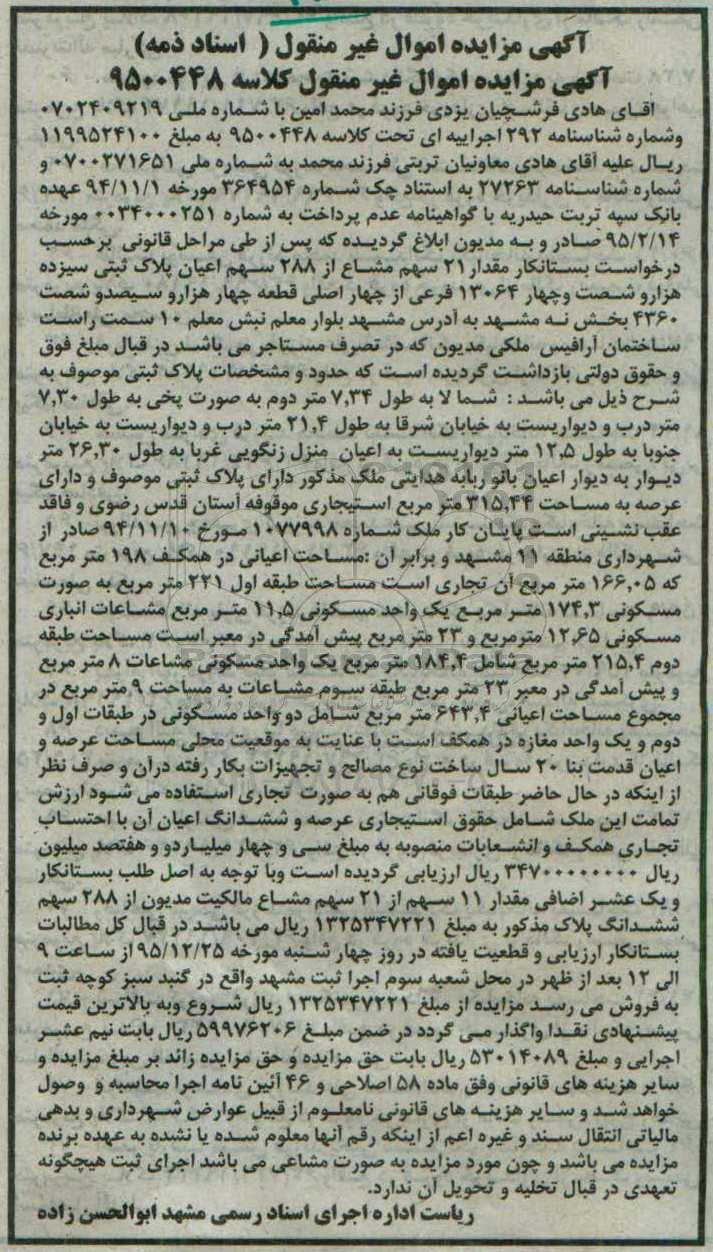 آگهی مزایده اموال غیر منقول ( اسناد ذمه)
آگهی مزایده اموال غیر منقول کلاسه ۹۵۰۰۴۴۸
اقای هادی فرشچیان یزدی فرزند محمد امین با شماره ملی ۰۷۰۲۴۰۹۲۱۹
وشماره شناسنامه ۲۹۲ اجراییه ای تحت کلاسه ۹۵۰۰۴۴۸ به مبلغ ۱۱۹۹۵۲۴۱۰۰
ریال علیه آقای هادی معاونیان تربتی فرزند محمد به شماره ملی ۰۷۰۰۲۷۱۶۵۱ و
شماره شناسنامه ۲۷۲۶۳ به استناد چک شماره ۳۶۴۹۵۴ مورخه ۹۴/۱۱/۱ عهده
بانک سپه تربت حیدریه با گواهینامه عدم پرداخت به شماره ۰۰۳۴۰۰۰۲۵۱ مورخه
۹۵/۲/۱۴ صادر و به مدیون ابلاغ گردیده که پس از طی مراحل قانونی برحسب
درخواست بستانکار مقدار ۲۱ سهم مشاع از ۲۸۸ سهم اعیان پلاک ثبتی سیزده
هزارو شصت وچهار ۱۳۰۶۴ فرعی از چهار اصلی قطعه چهار هزارو سیصدو شصت
۴۳۶۰ بخش نه مشهد به آدرس مشهد بلوار معلم نبش معلم ۱۰ سمت راست
ساختمان آرافیس ملکی مدیون که در تصرف مستاجر می باشد در قبال مبلغ فوق
و حقوق دولتی بازداشت گردیده است که حدود و مشخصات پلاک ثبتی موصوف به
شرح ذیل می باشد : شما لا به طول ۷,۳۴ متر دوم به صورت پخی به طول ۷,۳۰
متر درب و دیواریست به خیابان شرقا به طول ۲۱,۴ متر درب و دیواریست به خیابان
جنوبا به طول ۱۲,۵ متر دیواریست به اعیان منزل زنگویی غربا به طول ۲۶,۳۰ متر
دیوار به دیوار اعیان بانو ربابه هدایتی ملک مذکور دارای پلاک ثبتی موصوف و دارای
عرصه به مساحت ۳۱۵,۴۴ متر مربع استیجاری موقوفه آستان قدس رضوی و فاقد
عقب نشینی است پایان کار ملک شماره ۱۰۷۷۹۹۸ مورخ ۹۴/۱۱/۱۰ صادر از
شهرداری منطقه ۱۱ مشهد و برابر آن :مساحت اعیانی در همکف ۱۹۸ متر مربع
که ۱۶۶,۰۵ متر مربع آن تجاری است مساحت طبقه اول ۲۲۱ متر مربع به صورت
مسکونی ۱۷۴,۳ متر مربع یک واحد مسکونی ۱۱,۵ متر مربع مشاعات انباری
مسکونی ۱۲,۶۵ مترمربع و ۲۳ متر مربع پیش آمدگی در معبر است مساحت طبقه
دوم ۲۱۵,۴ متر مربع شامل ۱۸۴,۴ متر مربع یک واحد مسکونی مشاعات ۸ متر مربع
و پیش آمدگی در معبر ۲۳ متر مربع طبقه سوم مشاعات به مساحت ۹ متر مربع در
مجموع مساحت اعیانی ۶۴۳,۴ متر مربع شامل دو واحد مسکونی در طبقات اول و
دوم و یک واحد مغازه در همکف است با عنایت به موقعیت محلی مساحت عرصه و
اعیان قدمت بنا ۲۰ سال ساخت نوع مصالح و تجهیزات بکار رفته درآن و صرف نظر
از اینکه در حال حاضر طبقات فوقانی هم به صورت تجاری استفاده می شود ارزش
تمامت این ملک شامل حقوق استیجاری عرصه و ششدانگ اعیان آن با احتساب
تجاری همکف و انشعابات منصوبه به مبلغ سی و چهار میلیاردو و هفتصد میلیون
ریال ۳۴۷۰۰۰۰۰۰۰۰ ریال ارزیابی گردیده است وبا توجه به اصل طلب بستانکار
و یک عشر اضافی مقدار ۱۱ سهم از ۲۱ سهم مشاع مالکیت مدیون از ۲۸۸ سهم
ششدانگ پلاک مذکور به مبلغ ۱۳۲۵۳۴۷۲۲۱ ریال می باشد در قبال کل مطالبات
بستانکار ارزیابی و قطعیت یافته در روز چهار شنبه مورخه ۹۵/۱۲/۲۵ از ساعت ۹
الی ۱۲ بعد از ظهر در محل شعبه سوم اجرا ثبت مشهد واقع در گنبد سبز کوچه ثبت
به فروش می رسد مزایده از مبلغ ۱۳۲۵۳۴۷۲۲۱ ریال شروع وبه بالاترین قیمت
پیشنهادی نقدا واگذار می گردد در ضمن مبلغ ۵۹۹۷۶۲۰۶ ریال بابت نیم عشر
اجرایی و مبلغ ۵۳۰۱۴۰۸۹ ریال بابت حق مزایده و حق مزایده زائد بر مبلغ مزایده و
سایر هزینه های قانونی وفق ماده ۵۸ اصلاحی و ۴۶ آئین نامه اجرا محاسبه و وصول
خواهد شد و سایر هزینه های قانونی نامعلوم از قبیل عوارض شهرداری و بدهی
مالیاتی انتقال سند و غیره اعم از اینکه رقم آنها معلوم شده یا نشده به عهده برنده
مزایده می باشد و چون مورد مزایده به صورت مشاعی می باشد اجرای ثبت هیچگونه
تعهدی در قبال تخلیه و تحویل آن ندارد.
ریاست اداره اجرای اسناد رسمی مشهد ابوالحسن زاده